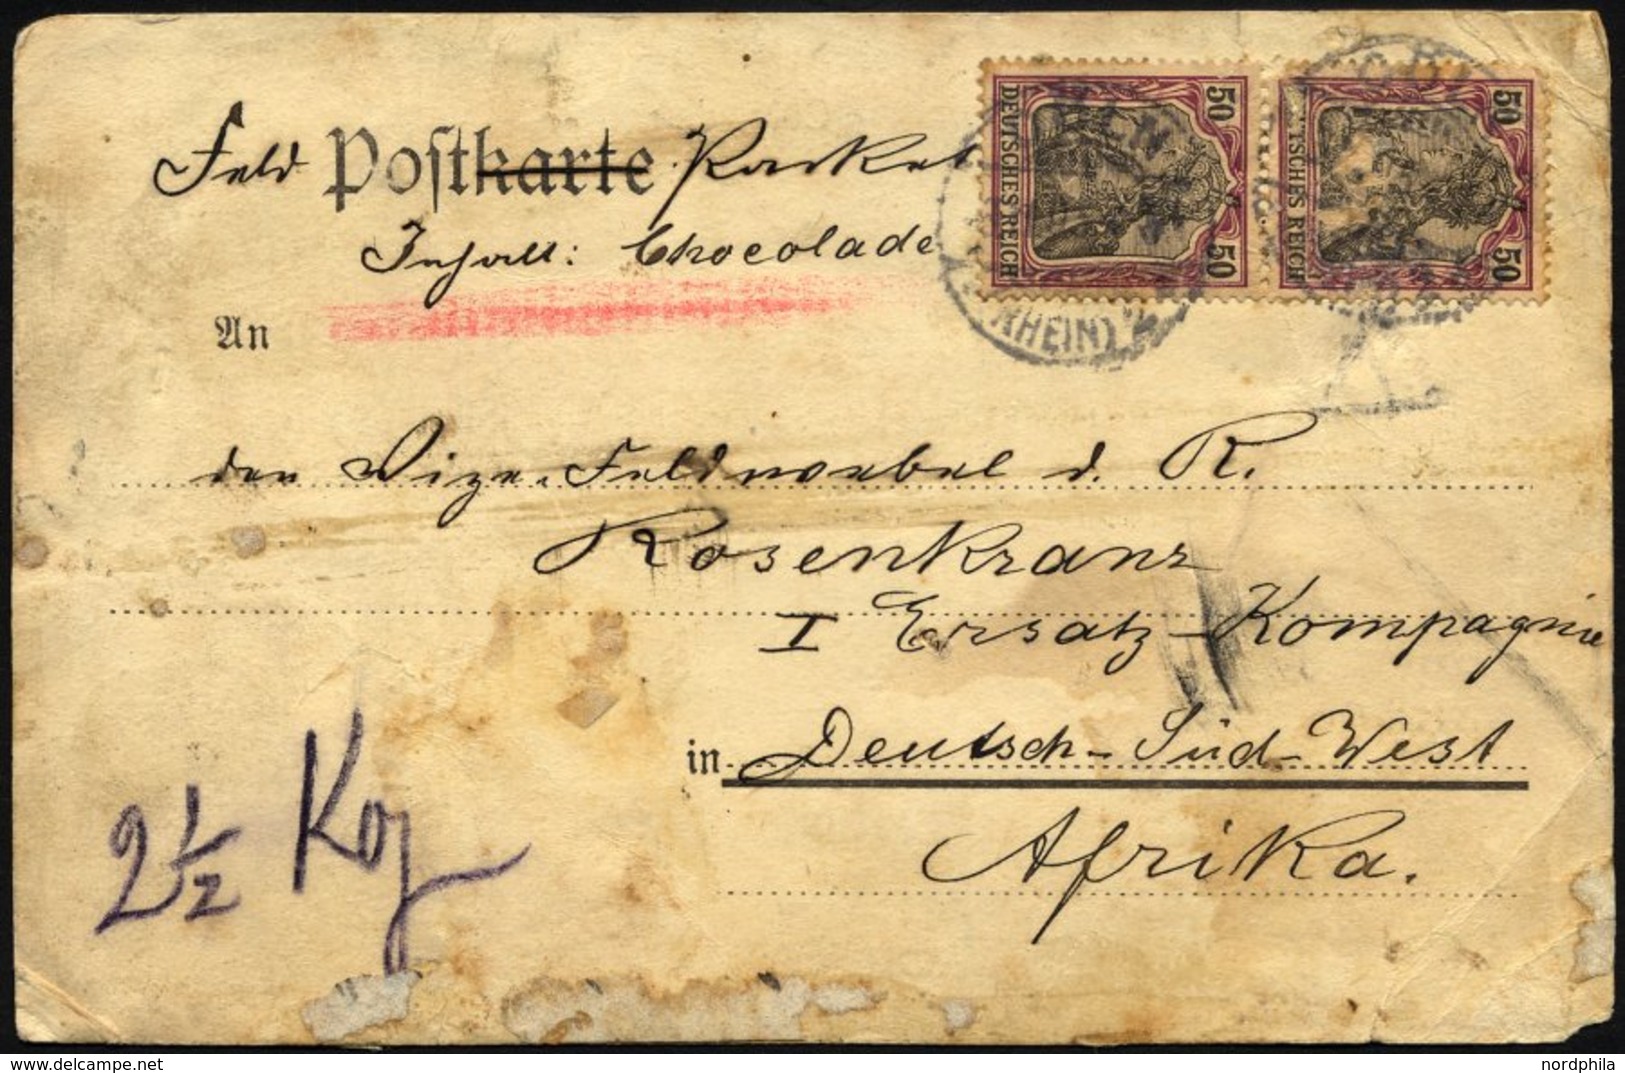 Feld Postkarte Packet
Inhalt: Chocolade
An
den Vize-Feldwebel d. R.
Rosenkranz
I Ersatz-Kompagnie
in Deutsch-Süd-West
Afrika.
2 1/2 Kg
50 DEUTSCHES REICH 50
50 DEUTSCHES REICH 50
(RHEIN)
© by nordphila.net
nordphila